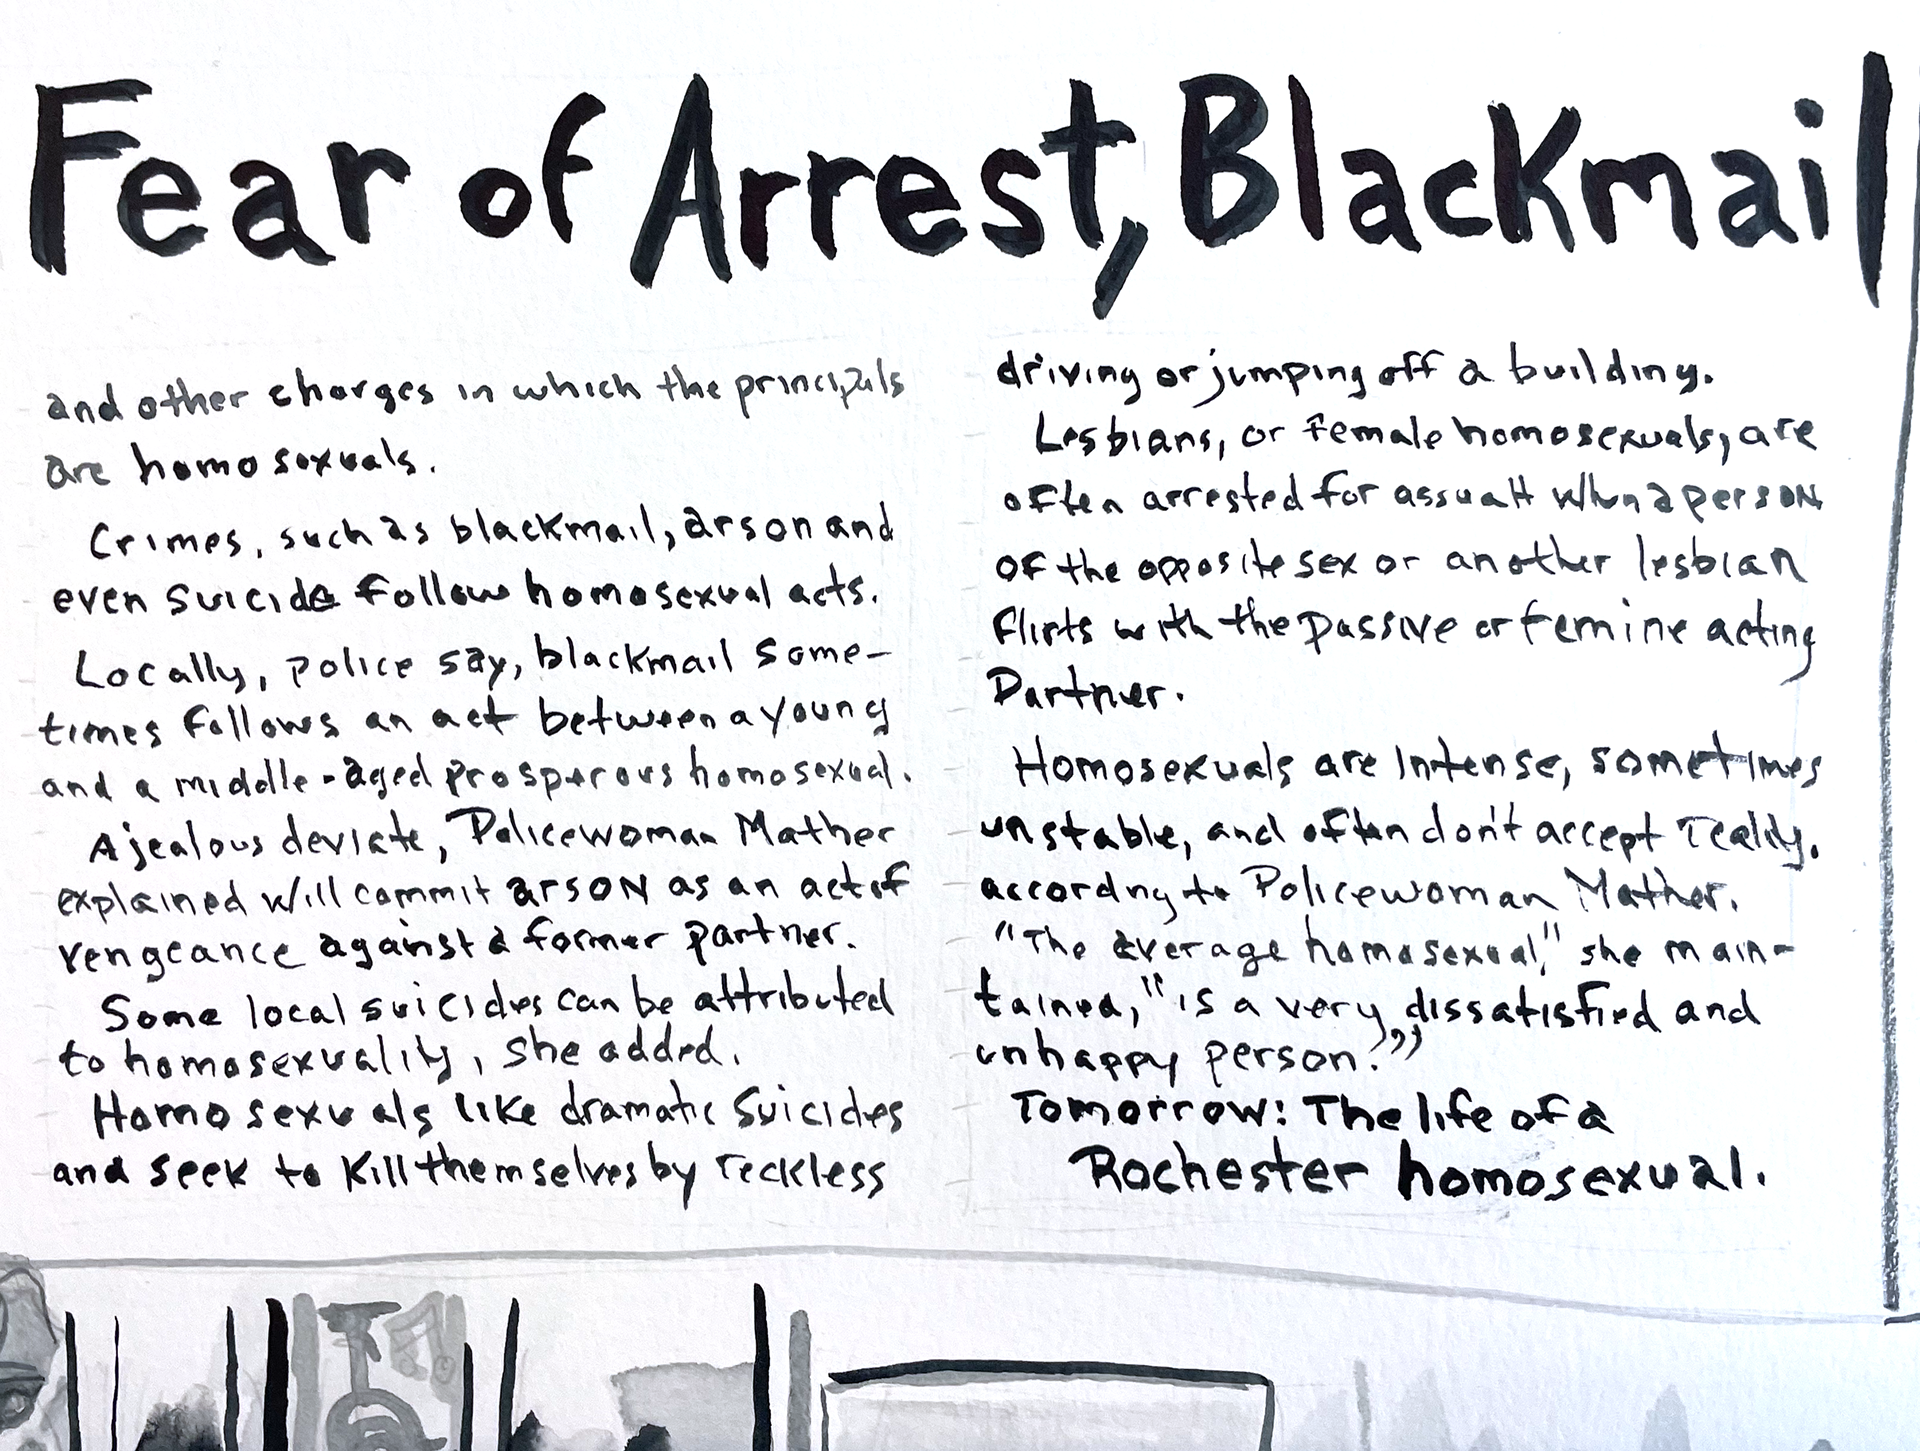 Fear of Arrest, Blackmail
and other charges in which the principals
are homosexuals.
Crimes, such as blackmail, arson and
even suicide follow homosexual acts.
Locally, police say, blackmail some-
times follows an act between a young
and a middle-aged prosperous homosexual.
A jealous deviate, Policewoman Mather
explained will commit arson as an act of
vengeance against a former partner.
Some local suicides can be attributed
to homosexuality, she added.
Homosexuals like dramatic suicides
and seek to kill themselves by reckless
driving or jumping off a building.
Lesbians, or female homosexuals, are
often arrested for assualt when a person
of the opposite sex or another lesbian
flirts with the passive or feminine acting
Partner.
Homosexuals are intense, sometimes
unstable, and often don't accept reality.
according to Policewoman Mather.
"The average homosexual," she main-
tained, "is a very dissatisfied and
unhappy person."
Tomorrow: The life of a
Rochester homosexual.